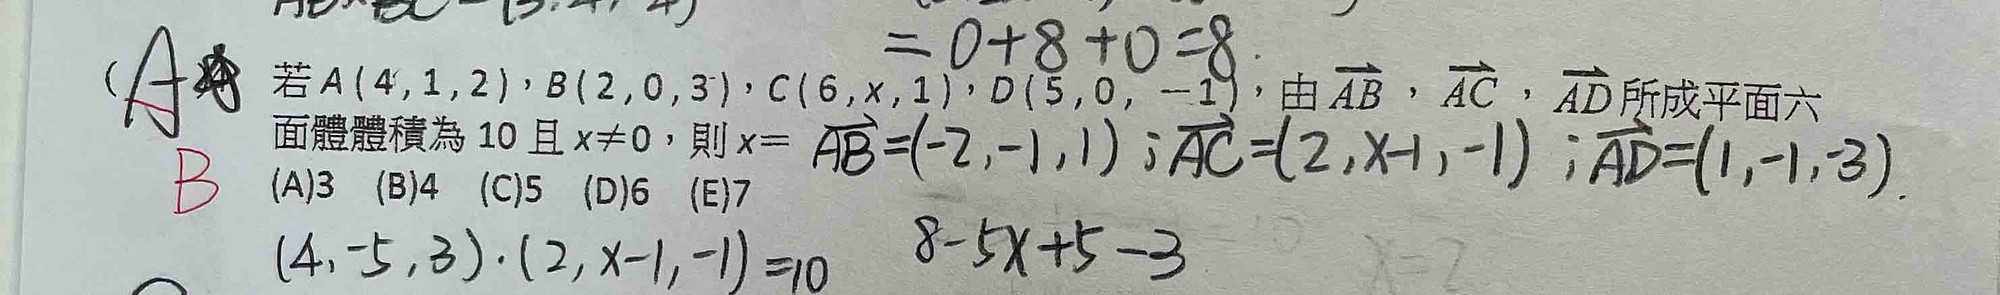 =0+8+0=8.
(A 若A(4,1,2),B(2,0,3),C(6,x,1),D(5,0,-1),由AB,AC,AD所成平面六
面體體積為10且x≠0,則x= AB=(-2,-1,1);AC=(2,x-1,-1);AD=(1,-1,-3).
B (A)3 (B)4 (C)5 (D)6 (E)7
(4,-5,3)·(2,x-1,-1)=10 8-5x+5-3
x=2